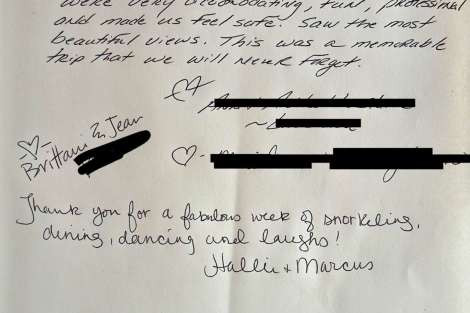 were very accomodating, fun, professional
and made us feel safe. Saw the most
beautiful views. This was a memorable
trip that we will never forget.
Brittani & Jean
Thank you for a fabulous week of snorkeling,
dining, dancing and laughs!
Hallie + Marcus